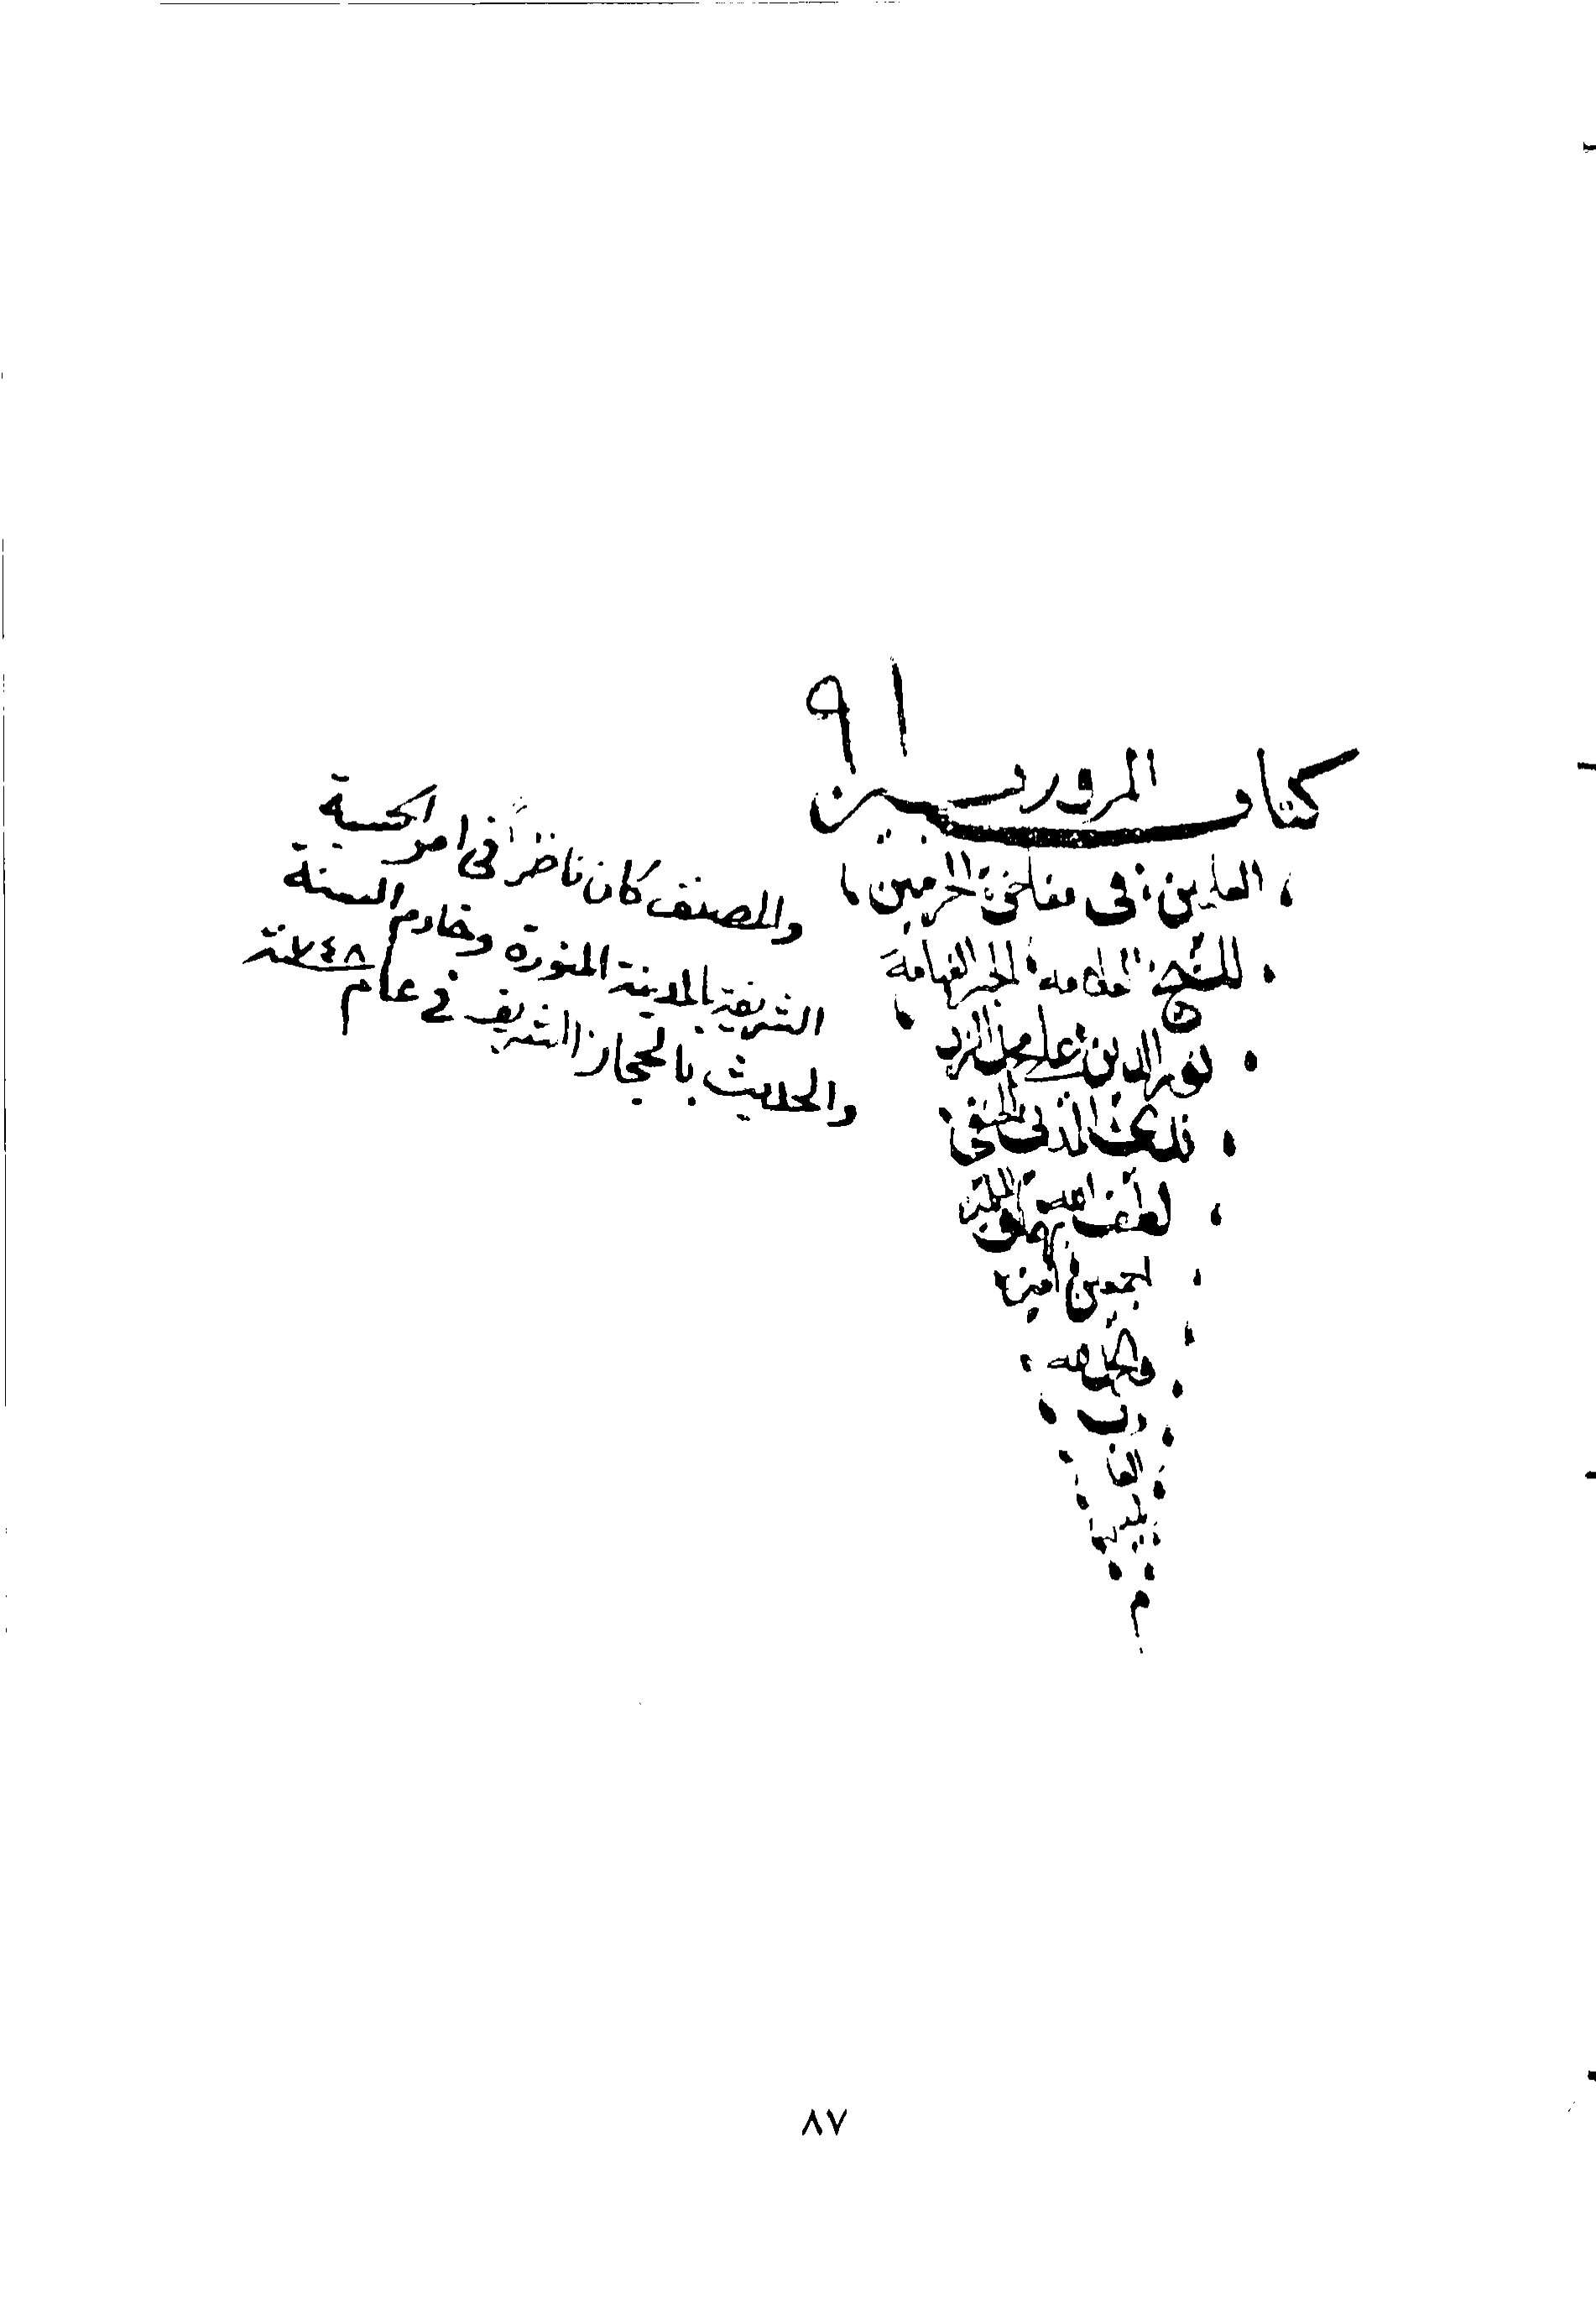 ٩١
كتاب المرورين
العذبين في مفاخرة الحرمين
للشيخ العلامة الحبر الفهامة
نور الدين علي محمد الزر
ندي ثم المدني الحنفي
لطف الله بهما وبالمسلمين
اجمعين امين
والحمد لله
رب
العا
لمين
م
والمصنف كان ناظراً في امر الحسبة
الشريفة بالمدينة المنورة وخادم السنة
والحديث بالحجاز الشريف في عام ٧٤٨سنة
٨٧